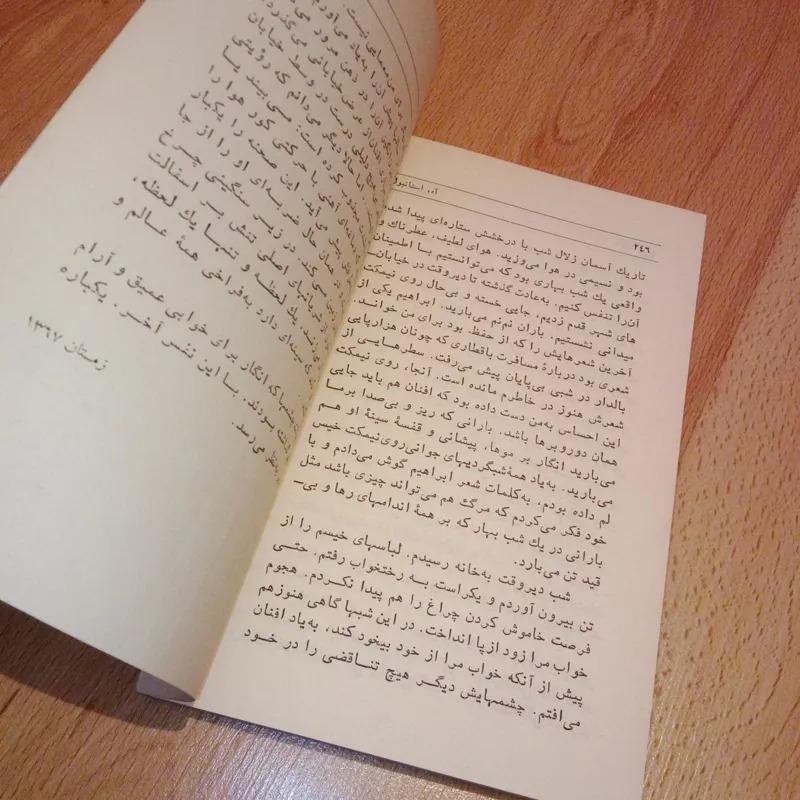 ۲۴۶
آه، استانبول
تاریك آسمان زلال شب با درخشش ستاره‌ای پیدا شده
بود و نسیمی در هوا می‌وزید. هوای لطیف، عطرناك و
واقعی یك شب بهاری بود که می‌توانستیم بسا اطمینان
آن‌را تنفس کنیم. به‌عادت گذشته تا دیروقت در خیابان‌ـ
های شهر قدم زدیم، جایی خسته و بی‌حال روی نیمکت
میدانی نشستیم. باران نم‌نم می‌بارید. ابراهیم یکی از
آخرین شعرهایش را که از حفظ بود برای من خوانـد.
شعری بود دربارهٔ مسافرت باقطاری که چونان هزارپایی
بالدار در شبی بی‌پایان پیش می‌رفت. سطرهایـی از
شعرش هنوز در خاطرم مانده است. آنجا، روی نیمکت
این احساس به‌من دست داده بود که افنان هم باید جایی
همان دوروبرها باشد. بارانی که ریز و بی‌صدا برما
می‌بارید انگار بر موها، پیشانی و قفسهٔ سینهٔ او هـم
می‌بارید. به‌یاد همهٔ‌شبگردیهای جوانی‌روی‌نیمکت خیس
لم داده بودم، به‌کلمات شعر ابراهیم گوش می‌دادم و با
خود فکر می‌کردم که مرگ هم می‌تواند چیزی باشد مثل
بارانی در یك شب بهار که بر همهٔ اندامهای رها و بی‌ـ
قید تن می‌بارد.
شب دیروقت به‌خانه رسیدم. لباسهای خیسم را از
تن بیرون آوردم و یکراست بـه رختخواب رفتم. حتـی
فرصت خاموش کردن چراغ را هم پیدا نکـردم. هجوم
خواب مرا زود ازپا انداخت. در این شبها گاهی هنوزهم
پیش از آنکه خواب مرا از خود بیخود کند، به‌یاد افنان
می‌افتم. چشمهایش دیگـر هیچ تنـاقضی را در خـود
معمایی نیست.
به‌یاد می‌آورم
در ذهن مرور می
خیابانی می‌گذرد
درست در وسط خیابان
دیگر می‌دانم که رؤیتی
کرده است: مـی‌بیند بـا
آهنی با حرکتی کور هوا را
پیش می‌آید. این صحنه را یکبار
همان حال ضربه‌ای او را از جا
می‌کند. در زیـر سنگینی چـرخ
خریانیهای اصلی تنش بـر اسفالت
یك لحظـه و تنهـا یك لحظه،
سینه‌ای دارد به‌فراخی همهٔ عـالم و
که انگار برای خوابی عمیق و آرام
بودند. بـا این نفس آخـر. یکباره
می‌رسد.
زمستان ۱۳۶۷